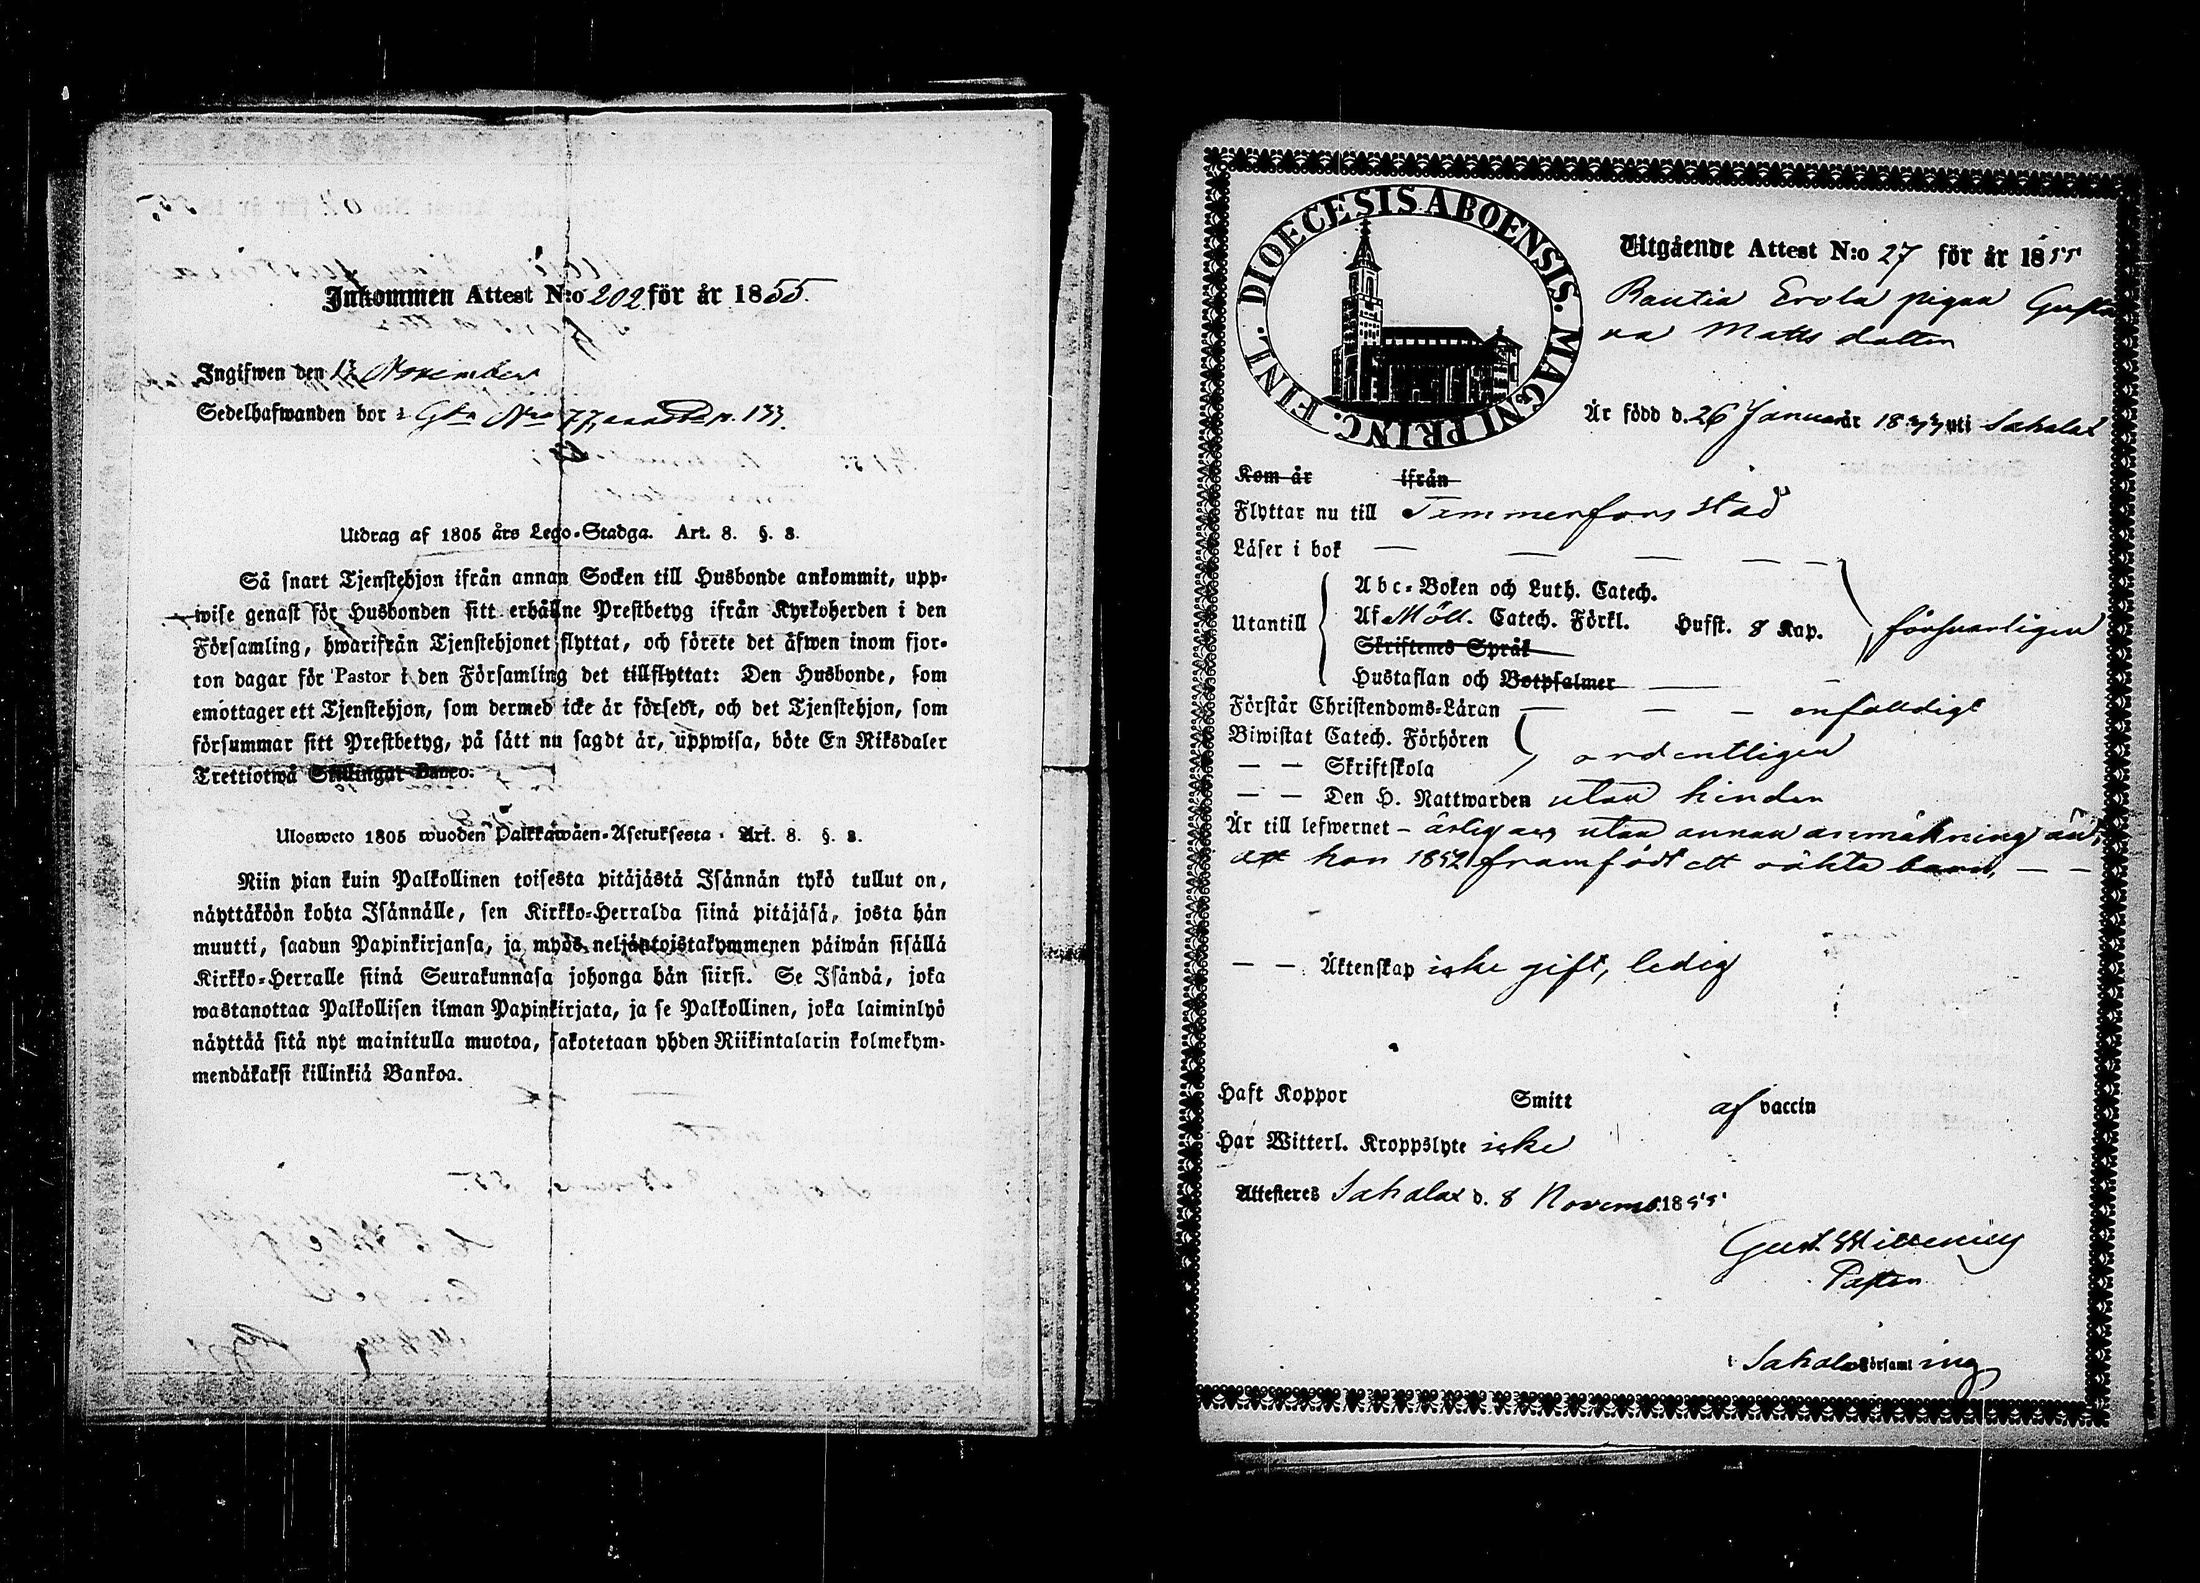 Inkommen Attest N:o 202 för år 1855.
Ingifwen den 13 November
Sedelhafwanden bor i Gån Nro 77,
Utdrag af 1805 års Lego-Stadga. Art. 8. §. 8.
Så snart Tjenstehjon ifrån annan Socken till Husbonde ankommit, upp-
wise genast för Husbonden sitt erhållne Prestbetyg ifrån Kyrkoherden i den
Församling, hwarifrån Tjenstehjonet flyttat, och förete det äfwen inom fjor-
ton dagar för Pastor i den Församling det tillflyttat: Den Husbonde, som
emottager ett Tjenstehjon, som dermed icke är försedt, och det Tjenstehjon, som
försummar sitt Prestbetyg, på sätt nu sagdt är, uppwisa, böte En Riksdaler
Trettiotwå Skillingar Banco.
Ulosweto 1805 wuoden Palkkawäen-Asetuksesta. Art. 8. §. 8.
Niin pian kuin Palkollinen toisesta pitäjästä Isännän tykö tullut on,
näyttäköön kohta Isännälle, sen Kirkko-Herralda siinä pitäjäsä, josta hän
muutti, saadun Papinkirjansa, ja myös neljäntoistakymmenen päiwän sisällä
Kirkko-Herralle siinä Seurakunnasa johonga hän siirsi. Se Isändä, joka
wastanottaa Palkollisen ilman Papinkirjata, ja se Palkollinen, joka laiminlyö
näyttää sitä nyt mainitulla muotoa, sakotetaan yhden Riikintalarin kolmekym-
mendäkaksi killinkiä Bankoa.
DIOECESIS ABOENSIS. MAGNI PRINC. FINL.
Utgående Attest N:o 27 för år 1855
Rautia Erola pigan Gusta
va Matts dotter
Är född d. 26 Januar år 1833 uti Sahalax
Kom år ifrån
Flyttar nu till Tammerfors stad
Läser i bok
Abc-Boken och Luth. Catech.
Utantill Af Möll. Catech. Förkl. Hufst. 8 Kap. försvarligen
Skriftenes Språk
Hustaflan och Botpsalmer
Förstår Christendoms-Läran enfaldigt
Biwistat Catech. Förhören ordentligen
— — Skriftskola
— — Den H. Nattwarden utan hinder
Är till lefwernet - ärlig och utan annan anmärkning än,
att hon 1852 framfödt ett oäkta barn, — —
— — Äktenskap icke gift, ledig
Haft Koppor Smitt af vaccin
Har Witterl. Kroppslyte icke
Attesteres Sahalax d. 8 Novemb. 1855
Gust.
Pastor
i Sahalax Församling